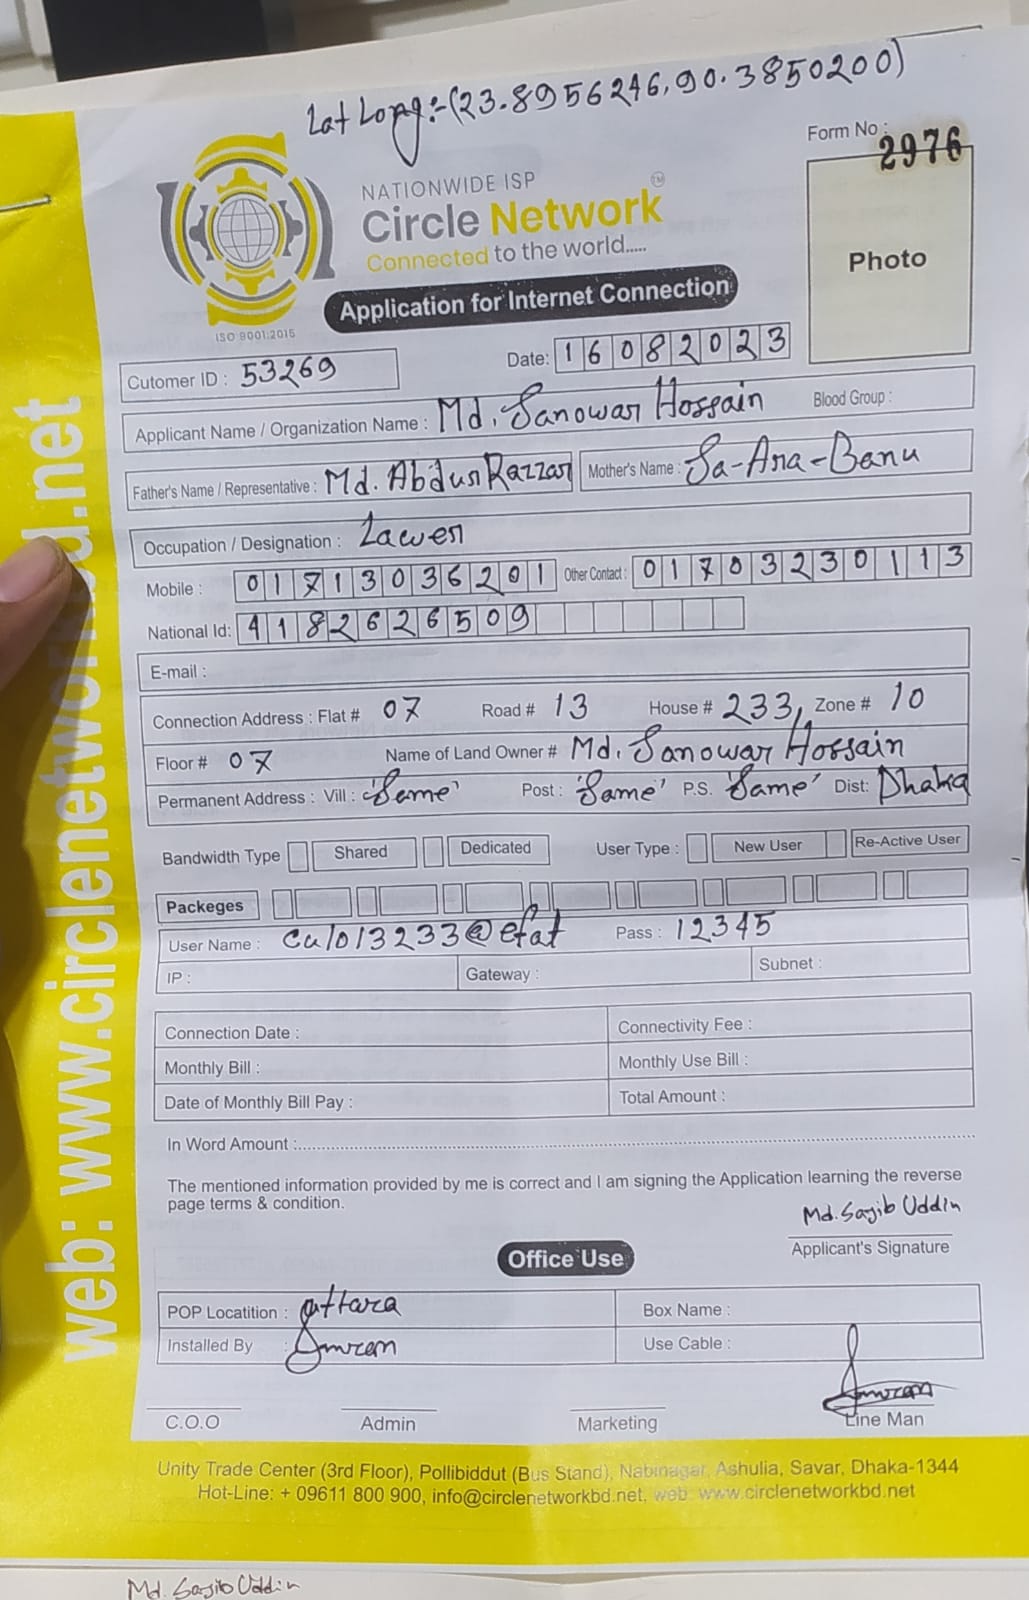 Lat Long:-(23.8956246,90.3850200)
Form No :
2976
NATIONWIDE ISP
Circle Network
TM
Connected to the world.....
ISO 9001:2015
Photo
Application for Internet Connection
Date: 16082023
Cutomer ID : 53269
Applicant Name / Organization Name : Md. Sanowar Hossain Blood Group :
Father's Name / Representative : Md. Abdur Razzar Mother's Name : Sa-Ara-Banu
Occupation / Designation : Lawer
Mobile : 01713036201 Other Contact : 01703230113
National Id: 4182626509
E-mail :
Connection Address : Flat # 07 Road # 13 House # 233, Zone # 10
Floor # 07 Name of Land Owner # Md. Sanowar Hossain
Permanent Address : Vill : 'Same' Post : 'Same' P.S. 'Same' Dist: Dhaka
Bandwidth Type Shared Dedicated User Type : New User Re-Active User
Packeges
User Name : cu1013233@efat Pass : 12345
IP : Gateway : Subnet :
Connection Date : Connectivity Fee :
Monthly Bill : Monthly Use Bill :
Date of Monthly Bill Pay : Total Amount :
In Word Amount :
The mentioned information provided by me is correct and I am signing the Application learning the reverse
page terms & condition.
Md. Sajib Uddin
Applicant's Signature
Office Use
POP Locatition : uttara Box Name :
Installed By : Imran Use Cable :
Imran
C.O.O Admin Marketing Line Man
Unity Trade Center (3rd Floor), Pollibiddut (Bus Stand), Nabinagar, Ashulia, Savar, Dhaka-1344
Hot-Line: + 09611 800 900, info@circlenetworkbd.net, web: www.circlenetworkbd.net
Md. Sajib Uddin
web: www.circlenetworkbd.net